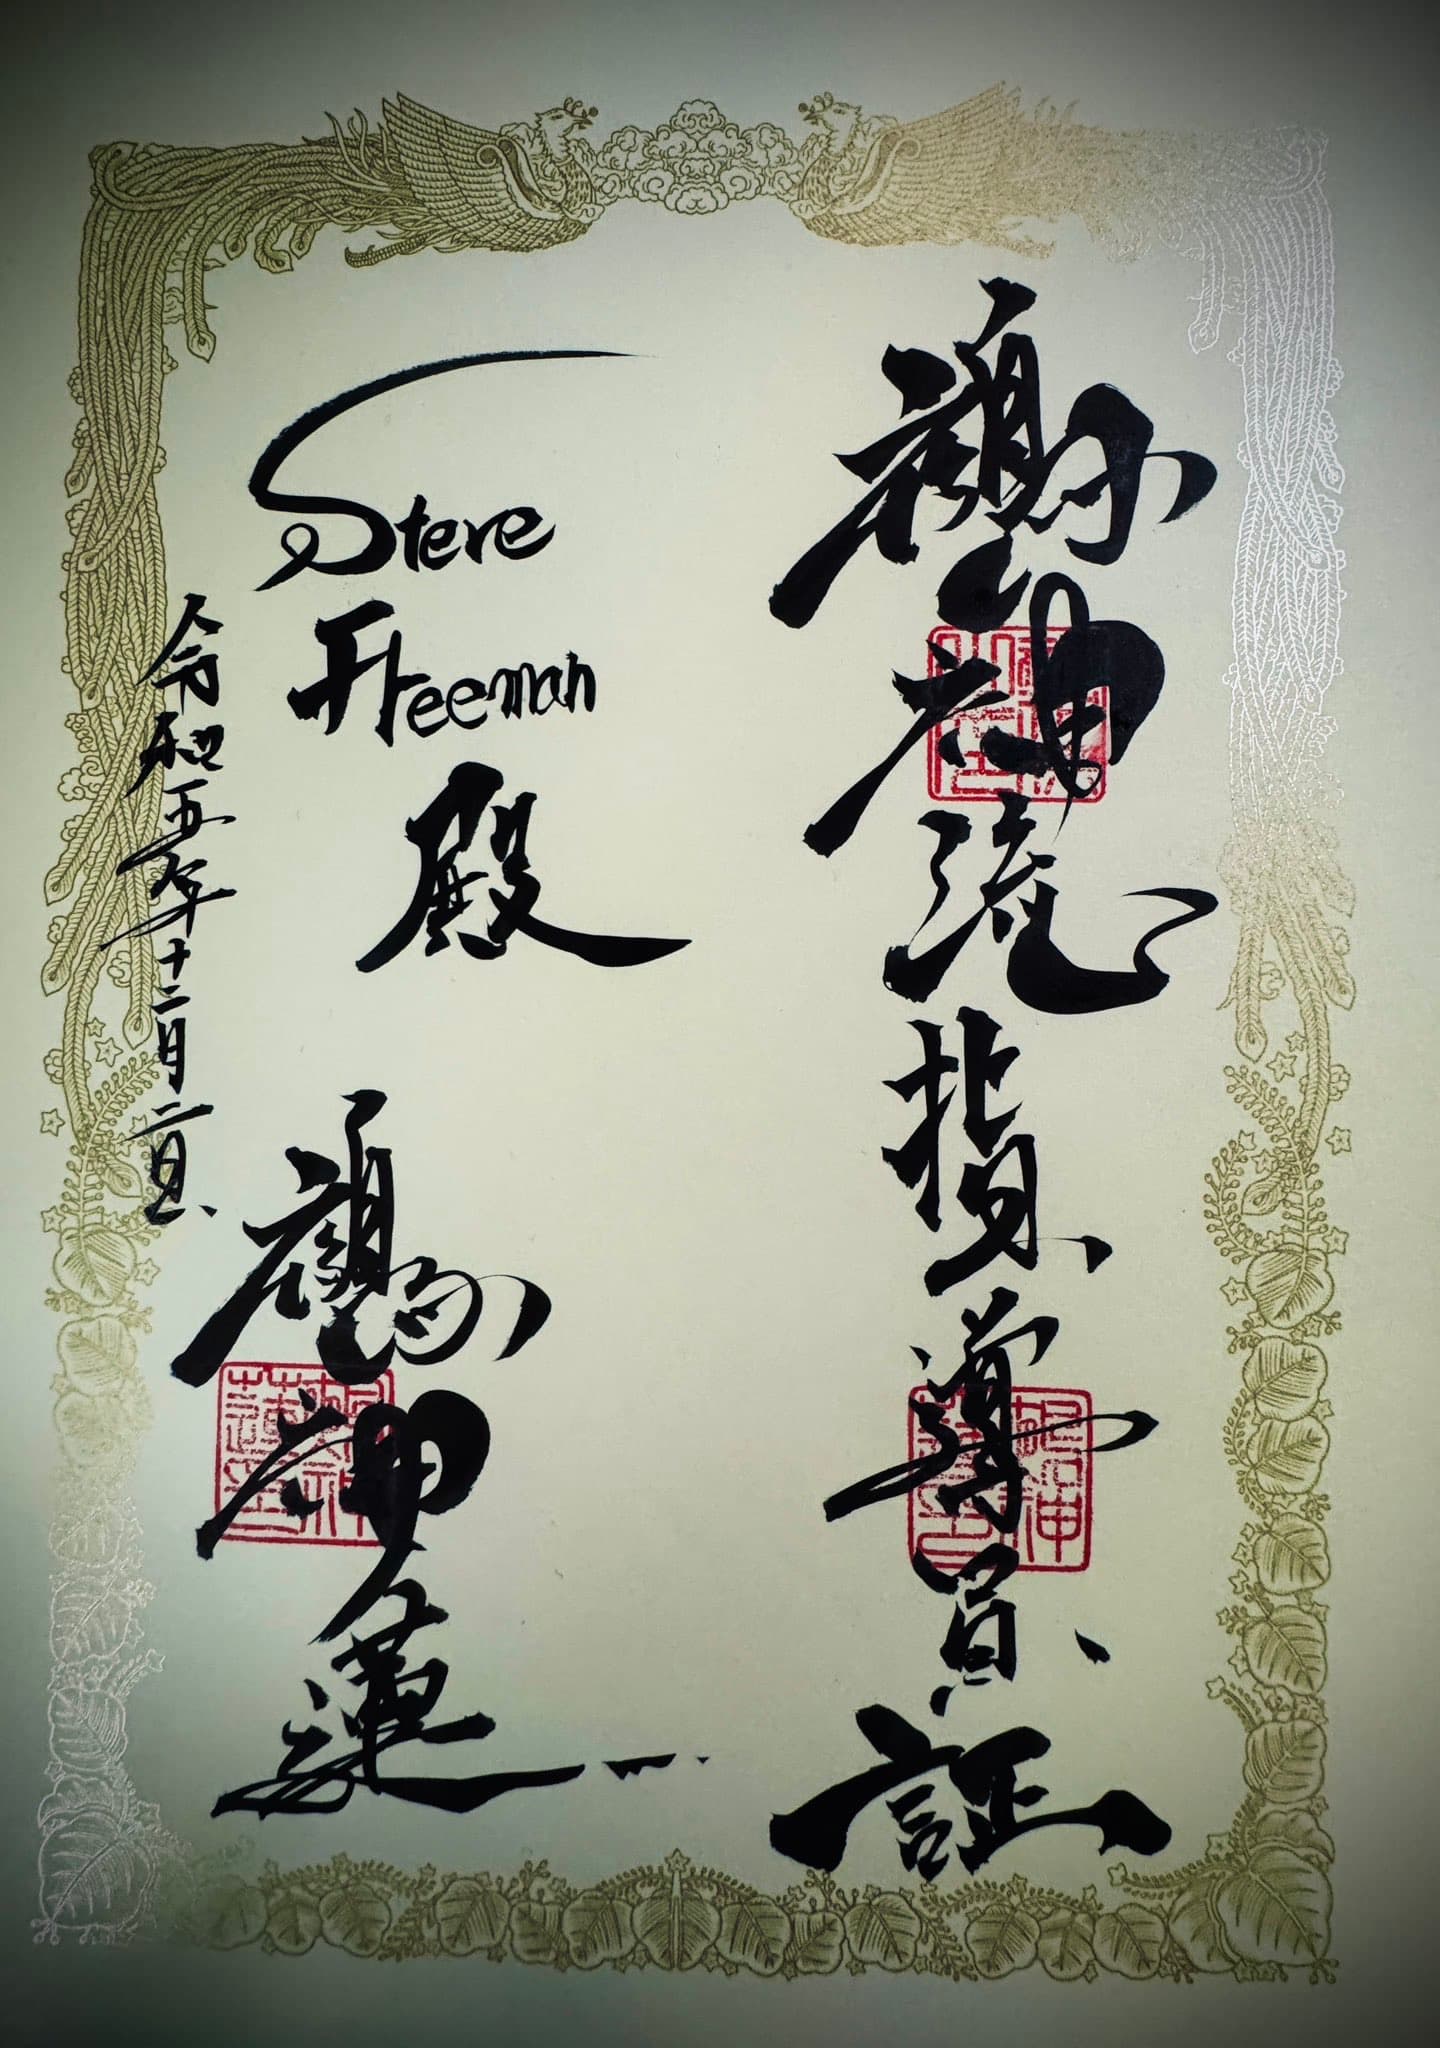 神流指導員証
Steve
Freeman
殿
令和五年十二月二日
神蓮